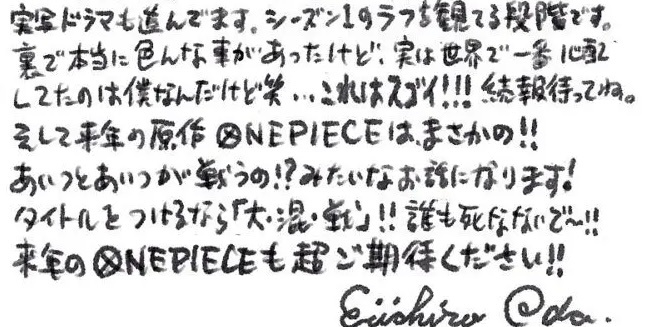 実写ドラマも進んでます。シーズン1のラフを観てる段階です。
裏で本当に色んな事があったけど、実は世界で一番心配
してたのは僕なんだけど笑…これはスゴイ!!! 続報待っててね。
そして来年の原作 ONE PIECEは、まさかの!!
あいつとあいつが戦うの!?みたいなお話になります!
タイトルをつけるなら「大・混・戦」!! 誰も死なないで〜!!
来年のONE PIECEも超ご期待ください!!
Eiichiro Oda.